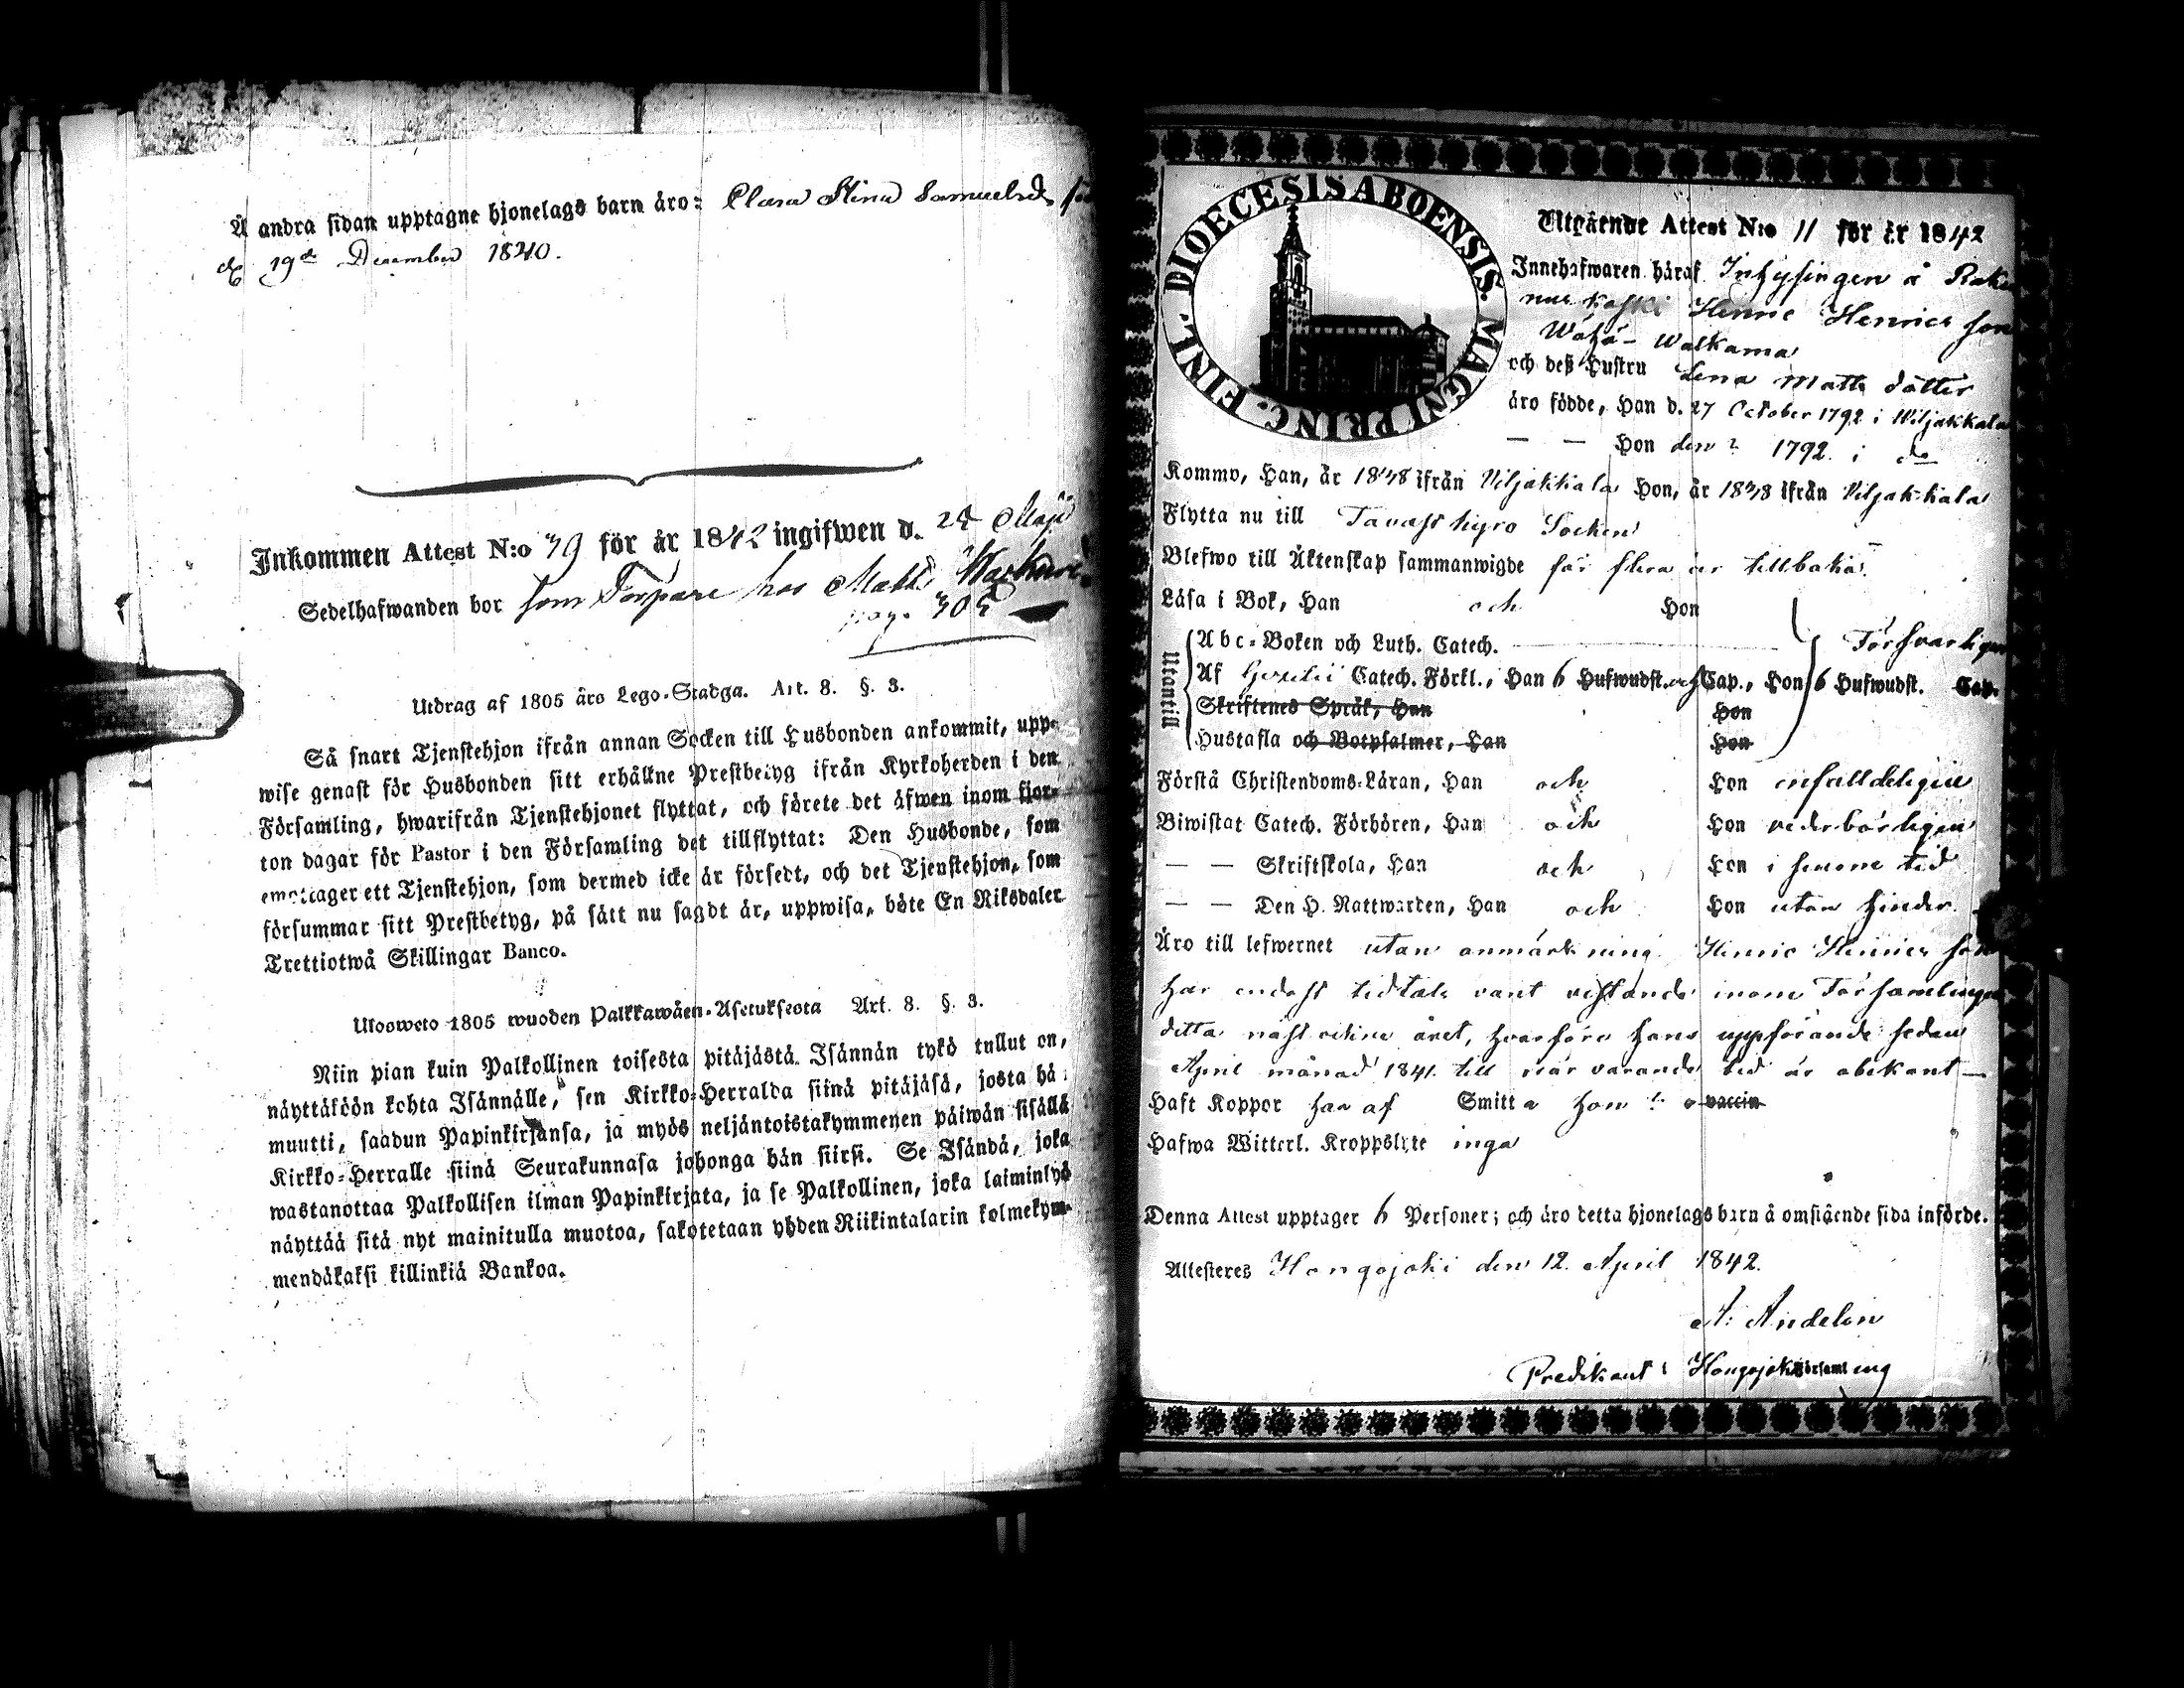 Å andra sidan upptagne hjonelags barn äro: Clara Stina Samuelsdr
d 19de December 1840.
Inkommen Attest N:o 39 för år 1842 ingifwen d. 24 Maji
Sedelhafwanden bor som Torpare hos Matts
pag. 305
Utdrag af 1805 års Lego-Stadga. Art. 8. §. 3.
Så snart Tjenstehjon ifrån annan Socken till Husbonden ankommit, upp-
wise genast för Husbonden sitt erhållne Prestbetyg ifrån Kyrkoherden i den
Församling, hwarifrån Tjenstehjonet flyttat, och förete det äfwen inom fjor-
ton dagar för Pastor i den Församling det tillflyttat: Den Husbonde, som
emottager ett Tjenstehjon, som dermed icke är försedt, och det Tjenstehjon, som
försummar sitt Prestbetyg, på sätt nu sagdt är, uppwisa, böte En Riksdaler
Trettiotwå Skillingar Banco.
Ulosweto 1805 wuoden Palkkawäen-Asetuksesta Art. 8. §. 3.
Niin pian kuin Palkollinen toisesta pitäjästä Isännän tykö tullut on,
näyttäköön kohta Isännälle, sen Kirkko-Herralda siinä pitäjäsä, josta hä
muutti, saadun Papinkirjansa, ja myös neljäntoistakymmenen päiwän sisällä
Kirkko-Herralle siinä Seurakunnasa johonga hän siirsi. Se Isändä, joka
wastanottaa Palkollisen ilman Papinkirjata, ja se Palkollinen, joka laiminlyö
näyttää sitä nyt mainitulla muotoa, sakotetaan yhden Riikintalarin kolmekym-
mendäkaksi killinkiä Bankoa.
DIOECESIS ABOENSIS. MAGNI PRINC. FINL.
Utgående Attest N:o 11 för år 1842
Innehafwaren häraf Inhysingen å
Henric Henrics son
Wähä-Walkama
och deß Hustru Lena Matts dotter
äro födde, Han d. 27 October 1792 i Wiljakkala
— — Hon den ? 1792 i do
Kommo, Han, år 1838 ifrån Viljakkala Hon, år 1838 ifrån Viljakkala
Flytta nu till Tavastkyro Socken
Blefwo till Äktenskap sammanwigde för flera år tillbaka.
Läsa i Bok, Han och Hon
Utantill
Abc-Boken och Luth. Catech. Försvarligen
Af Gezelii Catech. Förkl., Han 6 Hufwudst. och Cap., Hon 6 Hufwudst. Cap.
Skriftenes Språk, Han Hon
Hustafla och Botpsalmer, Han Hon
Förstå Christendoms-Läran, Han och Hon enfalldeligen
Biwistat Catech. Förhören, Han och Hon vederbörligen
— — Skriftskola, Han och Hon i sinom tid
— — Den H. Nattwarden, Han och Hon utan hinder.
Äro till lefwernet utan anmärkning. Henric Henrics son
har endast tidtals varit vistande inom Församlingen
detta näst vikne året, hvarföre hans uppförande sedan
April månad 1841 till när varande tid är obekant —
Haft Koppor han af Smitt a hon ? vaccin
Hafwa Witterl. Kroppslyte inga
Denna Attest upptager 6 Personer; och äro detta hjonelags barn å omstående sida införde.
Attesteres Hongojoki den 12. April 1842.
A: Andelin
Predikant i Hongojoki Församling